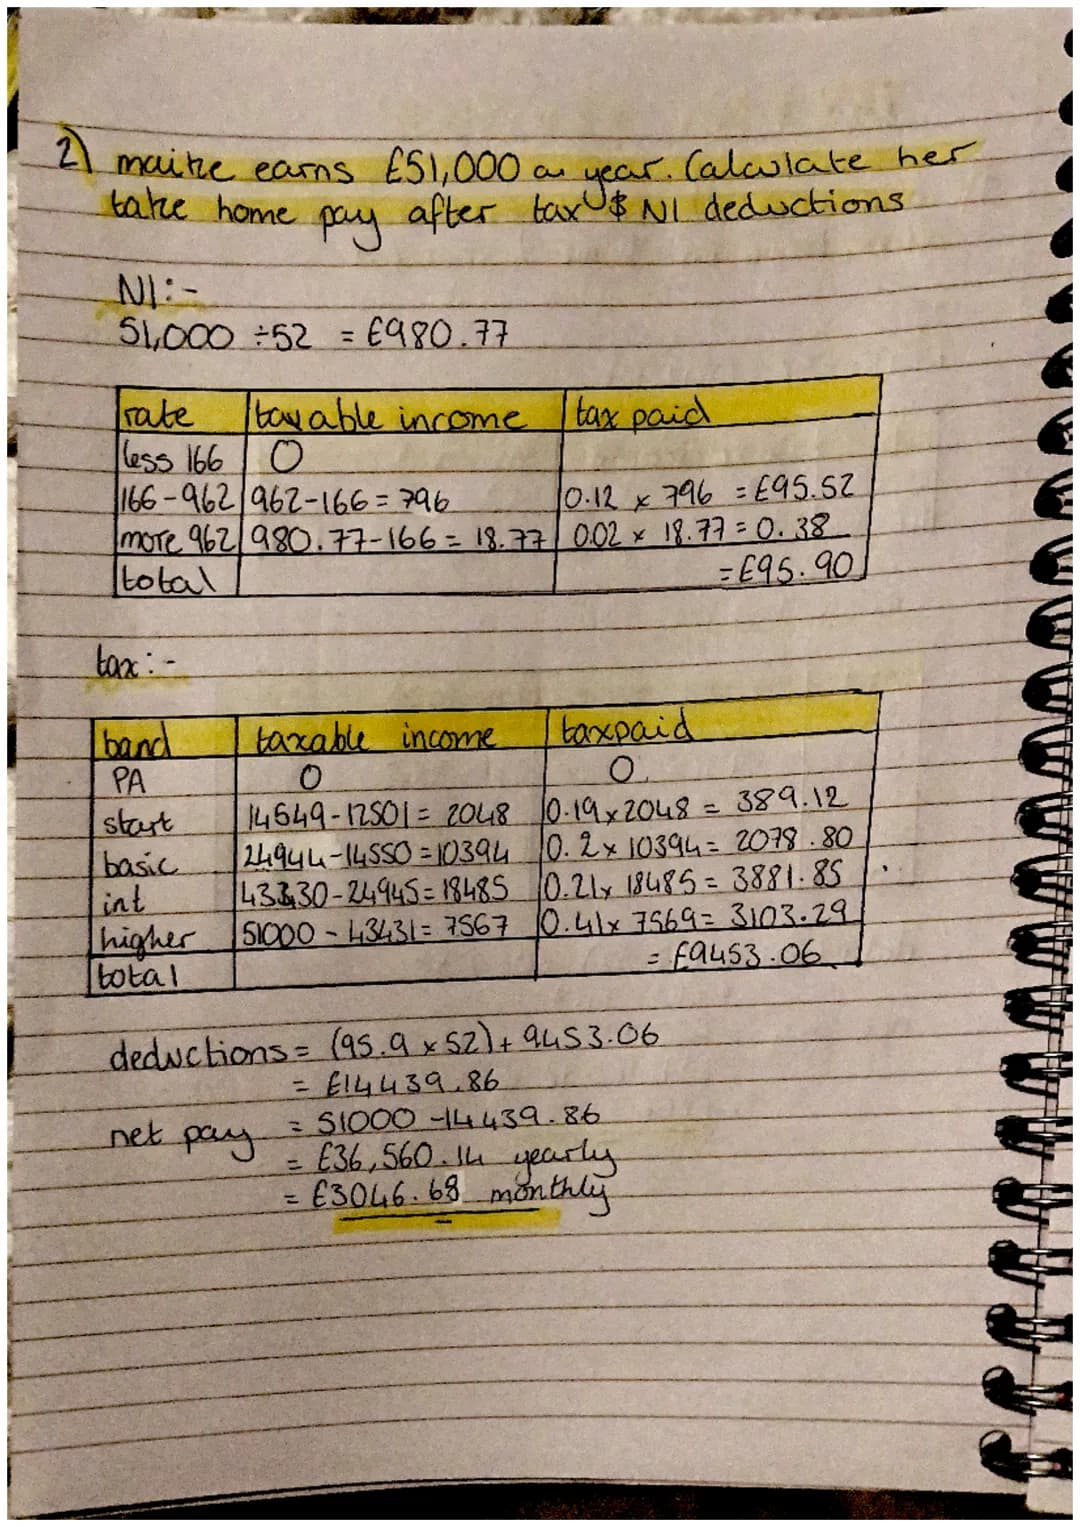 2) maire earns £51,000 a year. Calculate her
take home pay after tax & NI deductions
NI:-
51,000 ÷52 = £980.77
rate taxable income tax paid
less 166 0
166-962 962-166=796 0.12 x 796 = £95.52
more 962 980.77-166= 18.77 0.02 x 18.77=0.38
total =£95.90
tax:-
band taxable income taxpaid
PA 0 0
start 14549-12501= 2048 0.19x2048 = 389.12
basic 24944-14550=10394 0.2x 10394= 2078.80
int 43430-24945=18485 0.21x 18485= 3881.85
higher 51000-43431=7567 0.41x 7569= 3103.29
total = £9453.06
deductions= (95.9 x52)+ 9453.06
= £14439.86
net pay = 51000-14439.86
= £36,560.14 yearly
= £3046.68 monthly